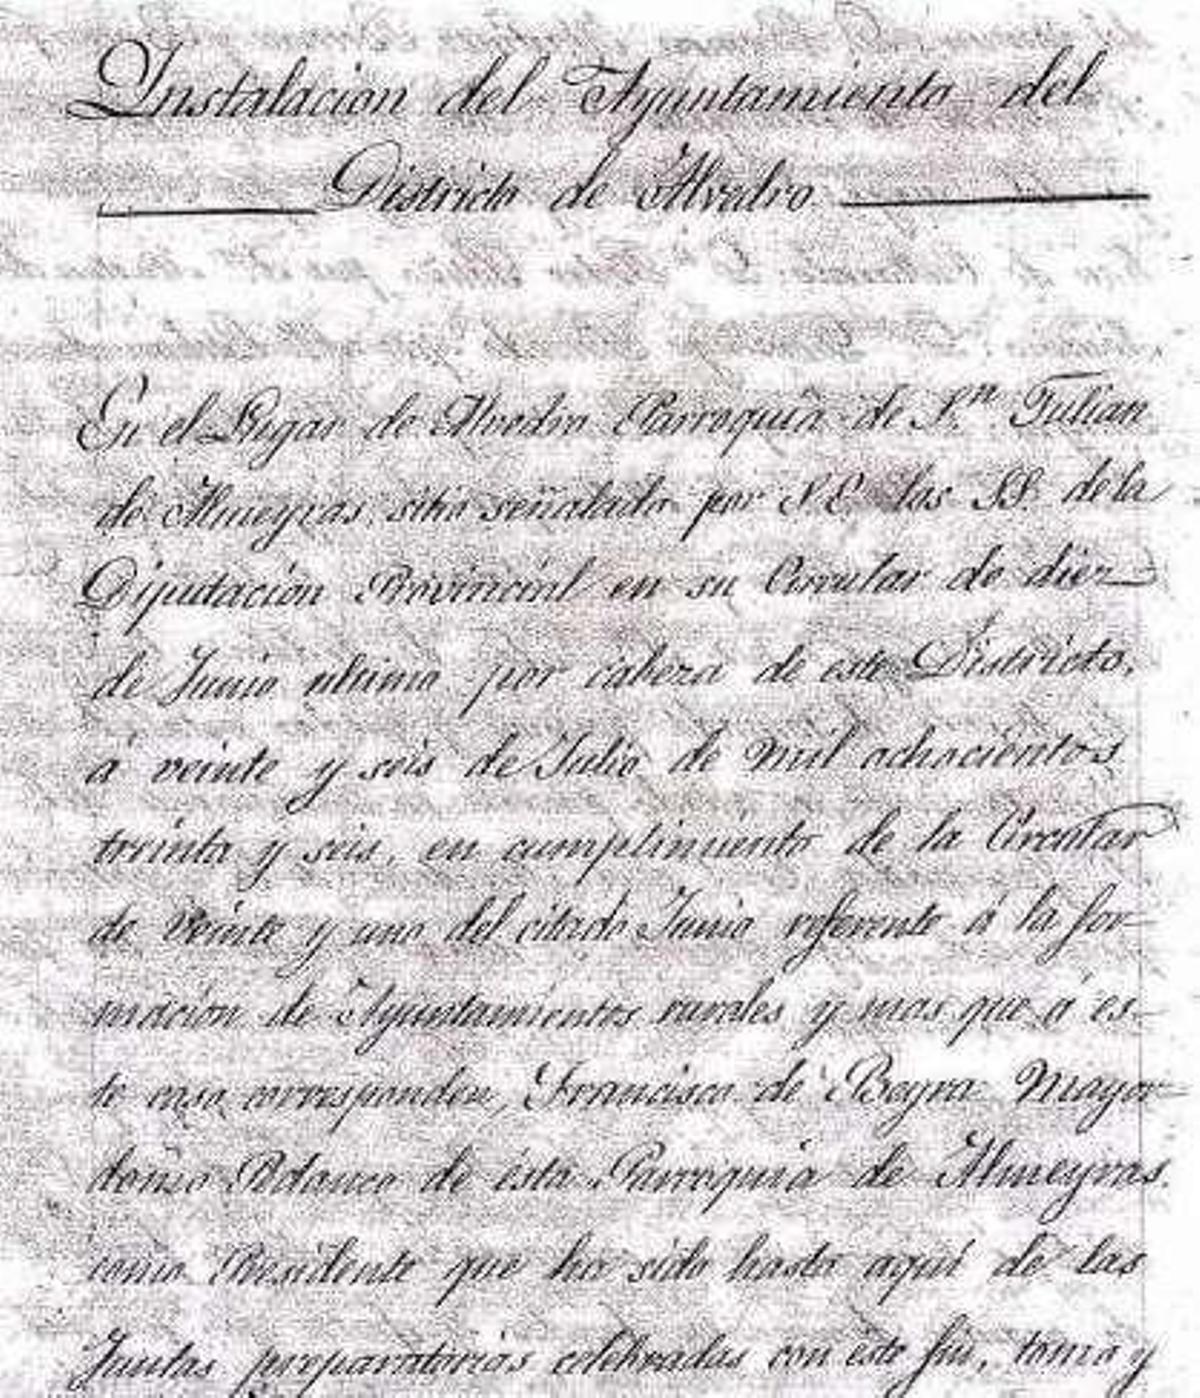 Instalacion del Ayuntamiento del
Districto de Alvedro
En el Lugar de Alvedro Parroquia de S.n Julian
de Almeyras, sitio señalado por S.E. las SS. de la
Diputación Provincial en su Circular de diez
de Junio ultimo por cabeza de este Districto,
á veinte y seis de Julio de mil ochocientos
treinta y seis, en cumplimiento de la Circular
de veinte y uno del citado Junio referente á la for-
mación de Ayuntamientos rurales y mas que á es-
te caso corresponden, Francisco de Beyra Mayor
domo Pedaneo de ésta Parroquia de Almeyras.
como Presidente que ha sido hasta aquí de las
Juntas preparatorias celebradas con este fin, tomo y